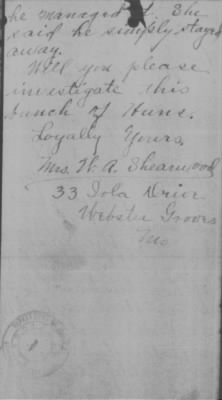 he managed it. She
said he simply stayed
away.
Will you please
investigate this
bunch of Huns.
Loyally Yours,
Mrs. W. A. Shearwood
33 Iola Drive
Webster Groves
Mo